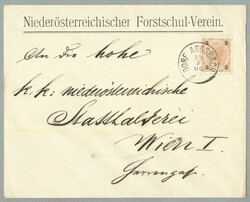 Niederösterreichischer Forstschul-Verein.
An die hohe
k. k. niederösterreichische
Statthalterei
Wien I.
Herrengasse
DORF AGGSBACH